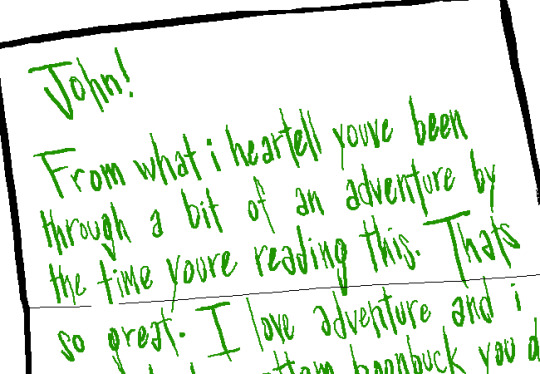 John!
From what i heartell youve been
through a bit of an adventure by
the time youre reading this. Thats
so great. I love adventure and i
bottom boonbuck you